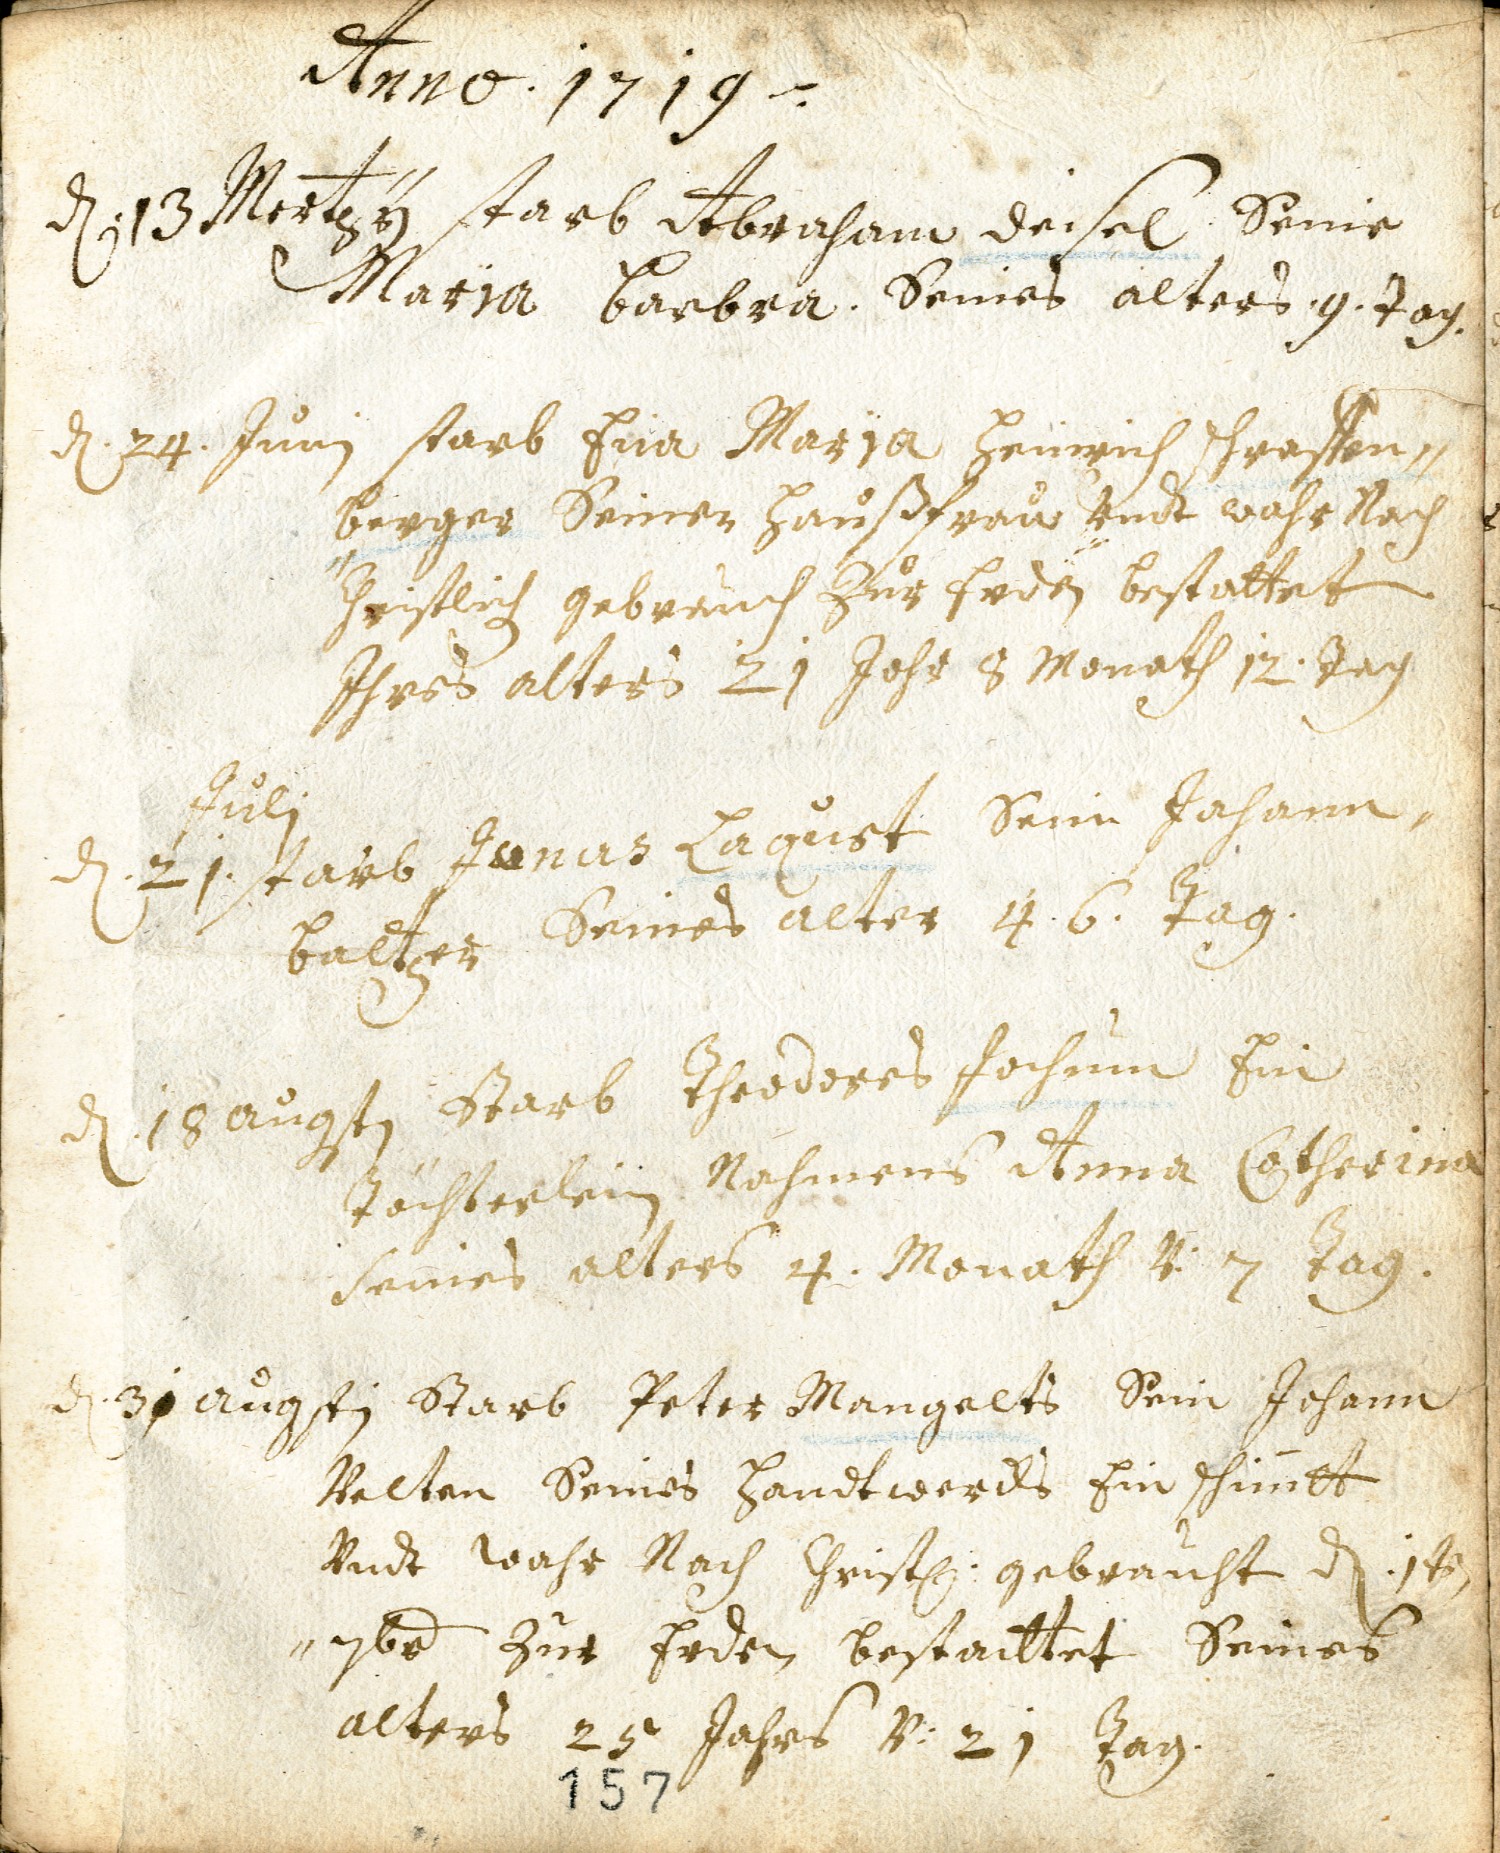 Anno. 1719
d. 13 Mertzÿ starb Abraham deisel Seine
Maria barbra. Seines alters. 9. Tag.
d. 24. Junj starb Eua Maria Heinrich schrassen"
"berger Seiner Haußfrau Undt wahr Nach
Christlich gebrauch Zur Erden bestattet
Ihres alters 21 Johr 8 Monath 12. Tag
Julj
d. 21. starb Jonas Laquet Sein Johann"
baltzer Seines alter 4. 6. Tag.
d. 18 augstj Starb Theodores Jochum Ein
Töchterlein Nahmens Anna Catherina
seines alters 4. Monath V: 7 Tag.
d. 31 augstj Starb Peter Mangelts Sein Johann
Velten Seines Handtwercks Ein schmitt
Undt wahr Nach Christl: gebraucht d. 1ts
"7br Zur Erden bestattet Seines
alters 25 Jahrs V: 21 Tag.
157